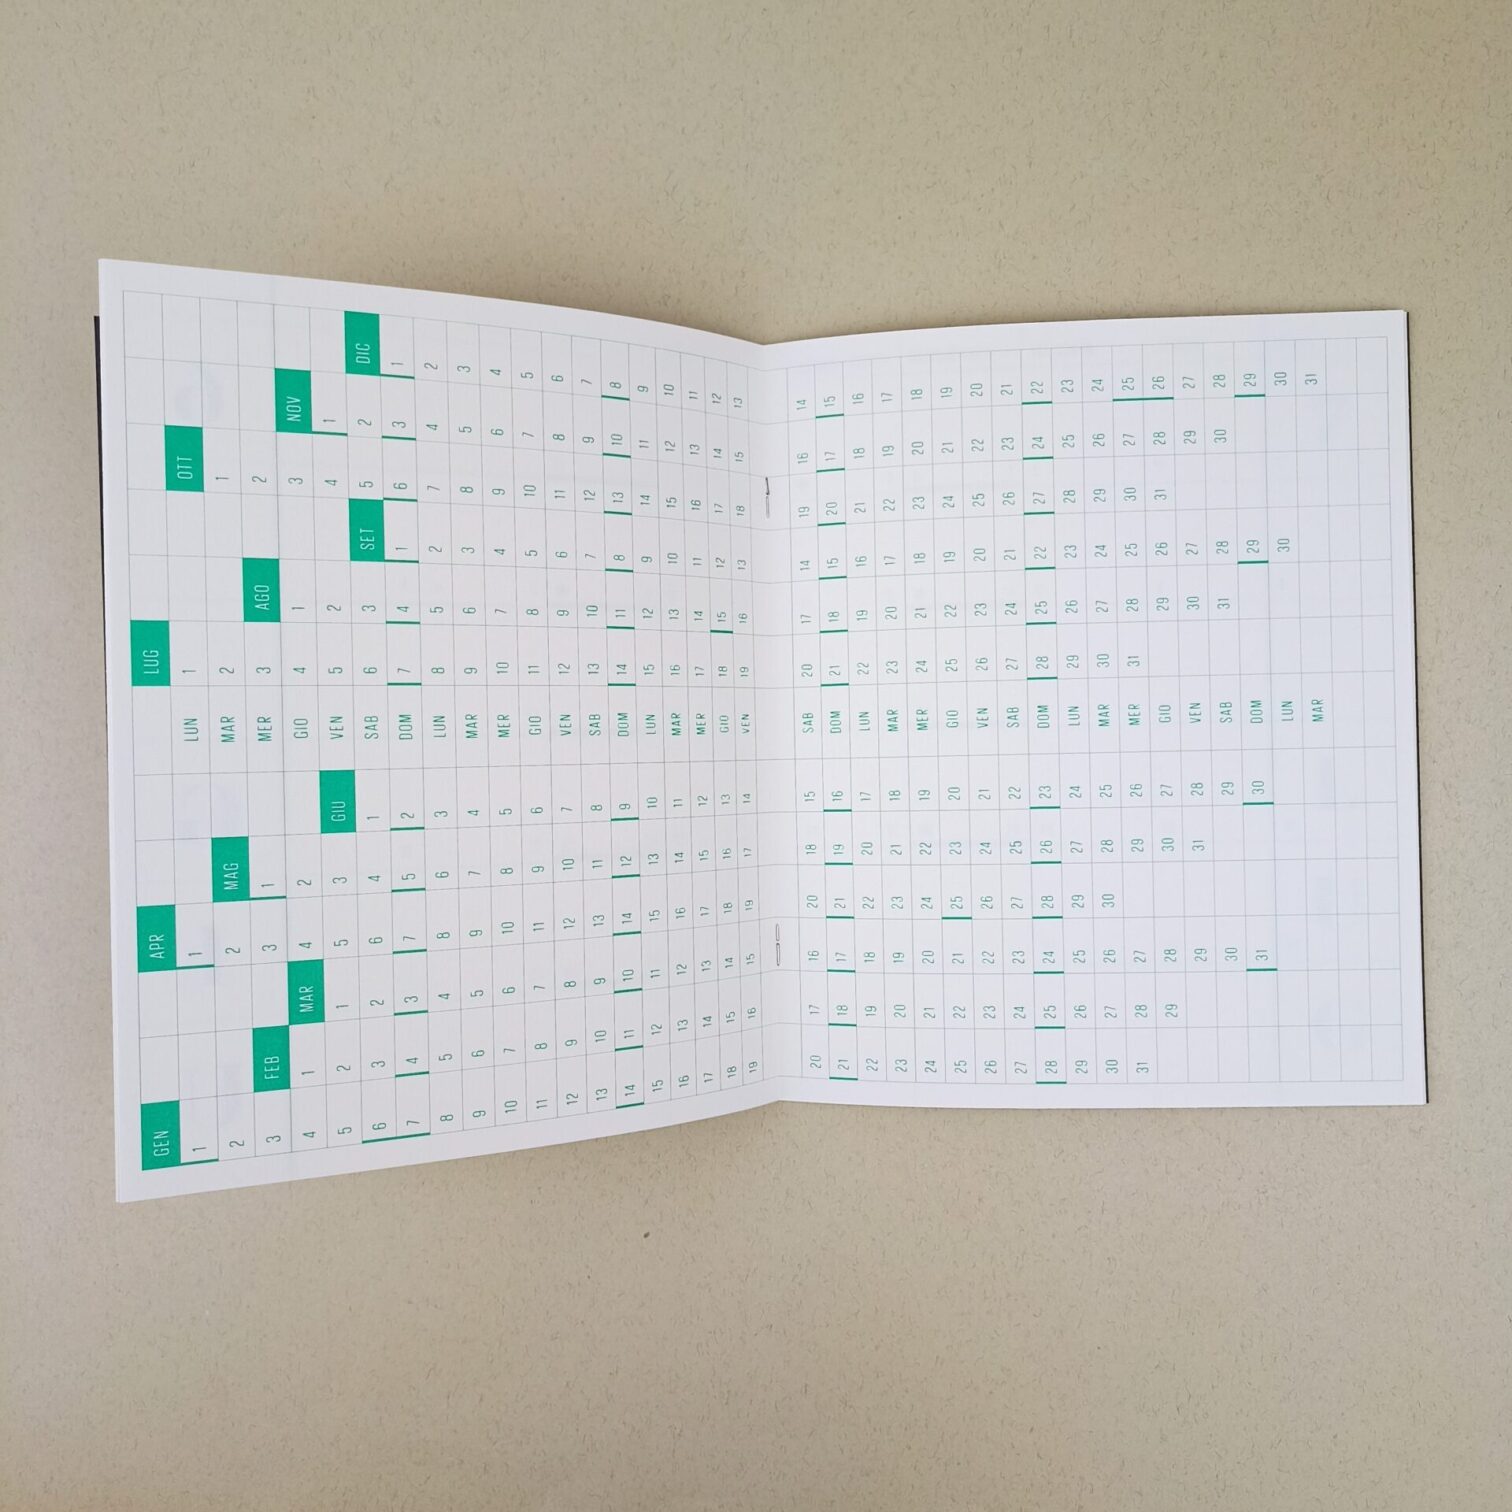 GEN APR LUG
1 1 LUN 1 OTT
2 2 MAG MAR 2 1
3 FEB 3 1 MER 3 AGO 2
4 1 MAR 4 2 GIO 4 1 3 NOV
5 2 1 5 3 GIU VEN 5 2 4 1
6 3 2 6 4 1 SAB 6 3 SET 5 2 DIC
7 4 3 7 5 2 DOM 7 4 1 6 3 1
8 5 4 8 6 3 LUN 8 5 2 7 4 2
9 6 5 9 7 4 MAR 9 6 3 8 5 3
10 7 6 10 8 5 MER 10 7 4 9 6 4
11 8 7 11 9 6 GIO 11 8 5 10 7 5
12 9 8 12 10 7 VEN 12 9 6 11 8 6
13 10 9 13 11 8 SAB 13 10 7 12 9 7
14 11 10 14 12 9 DOM 14 11 8 13 10 8
15 12 11 15 13 10 LUN 15 12 9 14 11 9
16 13 12 16 14 11 MAR 16 13 10 15 12 10
17 14 13 17 15 12 MER 17 14 11 16 13 11
18 15 14 18 16 13 GIO 18 15 12 17 14 12
19 16 15 19 17 14 VEN 19 16 13 18 15 13
20 17 16 20 18 15 SAB 20 17 14 19 16 14
21 18 17 21 19 16 DOM 21 18 15 20 17 15
22 19 18 22 20 17 LUN 22 19 16 21 18 16
23 20 19 23 21 18 MAR 23 20 17 22 19 17
24 21 20 24 22 19 MER 24 21 18 23 20 18
25 22 21 25 23 20 GIO 25 22 19 24 21 19
26 23 22 26 24 21 VEN 26 23 20 25 22 20
27 24 23 27 25 22 SAB 27 24 21 26 23 21
28 25 24 28 26 23 DOM 28 25 22 27 24 22
29 26 25 29 27 24 LUN 29 26 23 28 25 23
30 27 26 30 28 25 MAR 30 27 24 29 26 24
31 28 27 29 26 MER 31 28 25 30 27 25
29 28 30 27 GIO 29 26 31 28 26
29 31 28 VEN 30 27 29 27
30 29 SAB 31 28 30 28
31 30 DOM 29 29
LUN 30 30
MAR 31